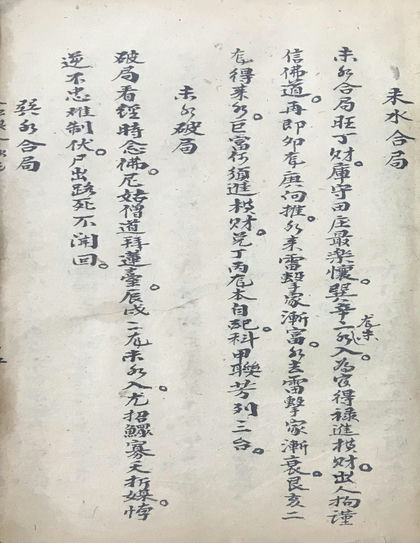 未水合局
未水合局旺丁財。庫守田庄最楽懷。巽辛二水入。為官得祿進橫財。出人拘謹
龙未
信佛道。再即卯龙庚向推。水来雷擊家漸富。水去雷擊家漸衰。艮亥二
龙得来水。巨富何須進橫財。兑丁丙龙本自紀。科甲聯芳列三台。
未水破局
破局看經時念佛。尼姑僧道拜蓮臺。辰戌二龙未水入。尤招鰥寡夭折媒。悖
逆不忠难制伏。尸出路死不闭回。
巽水合局